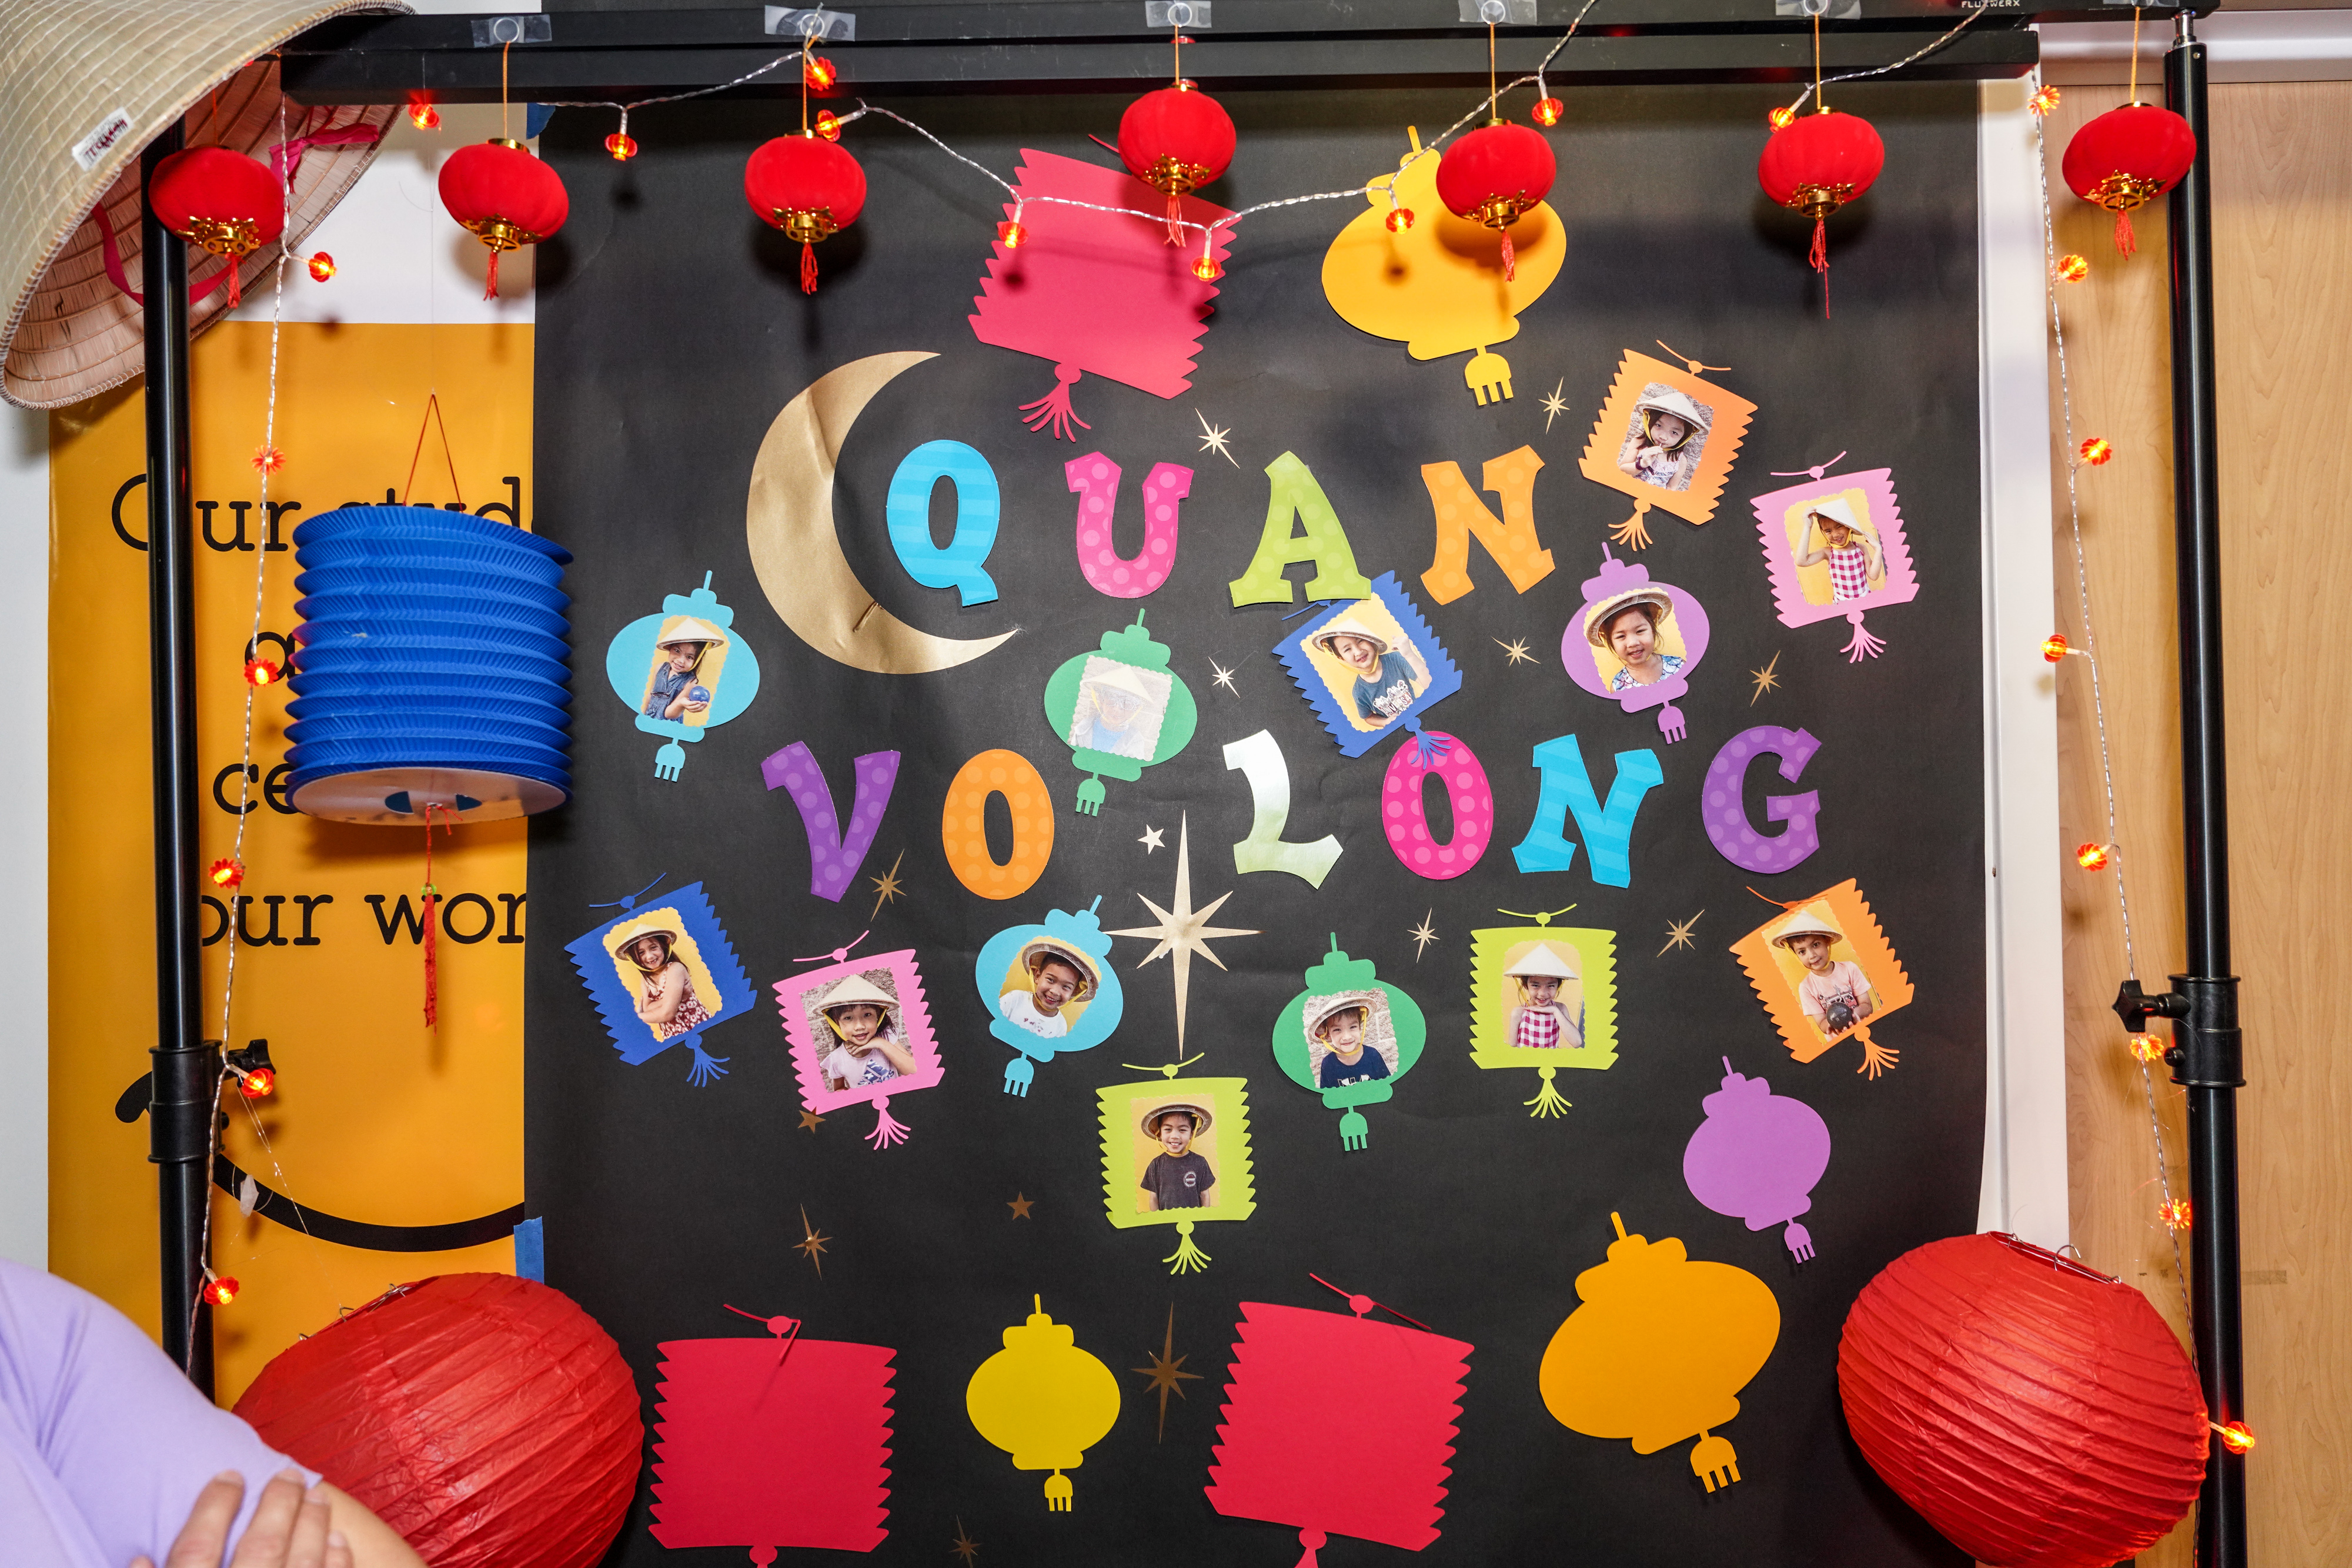 FLUXWERX
QUAN
VO LONG
Our stud
a
ce
our wor